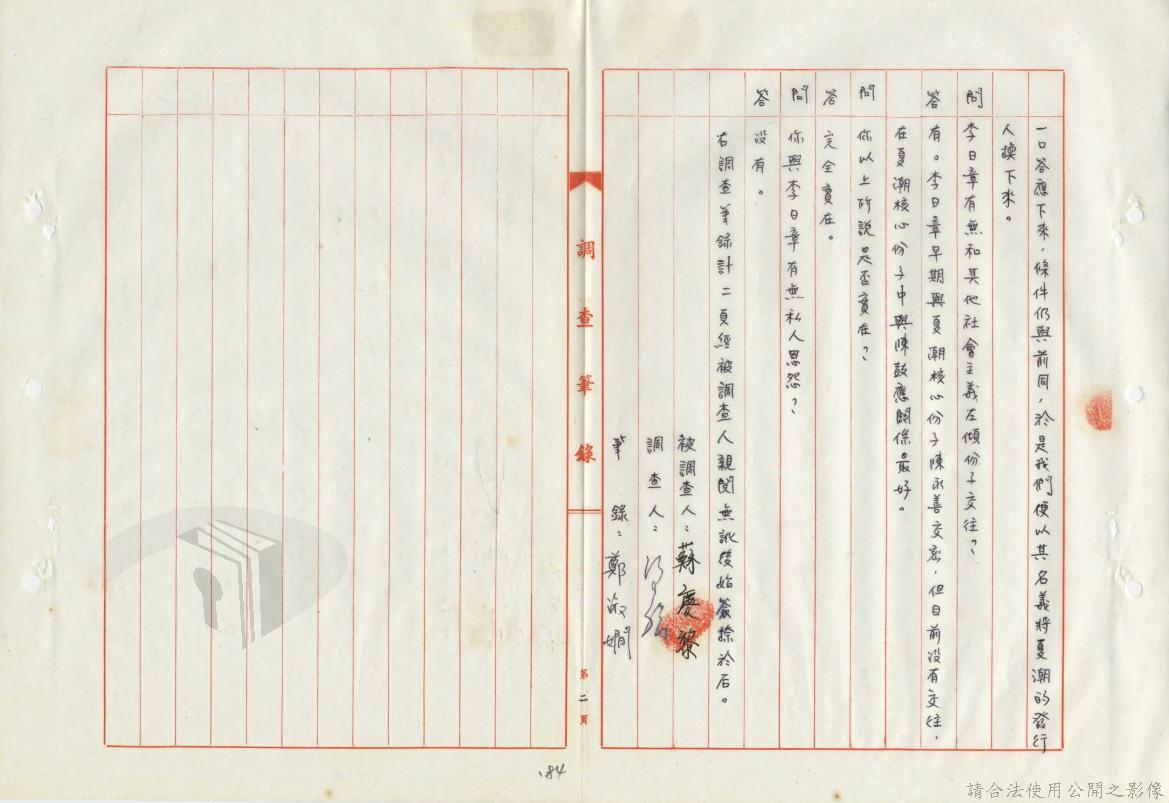 一口答應下來,條件仍與前同,於是我們便以其名義將夏潮的發行
人換下來。
問 李日章有無和其他社會主義左傾份子交往?
答 有。李日章早期與夏潮核心份子陳永善交密,但目前沒有交往,
在夏潮核心份子中與陳鼓應關係最好。
問 你以上所說是否實在?
答 完全實在。
問 你與李日章有無私人恩怨?
答 沒有。
右調查筆錄計二頁經被調查人親閱無訛後始簽捺於后。
被調查人:蘇慶黎
調查人:
筆錄:鄭淑嫻
調查筆錄
第二頁
184
請合法使用公開之影像